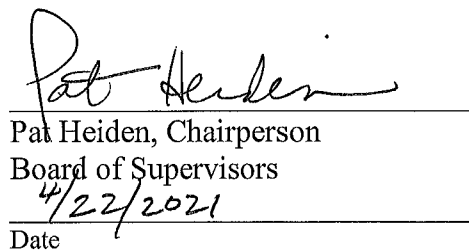 Pat Heiden
Pat Heiden, Chairperson
Board of Supervisors
4/22/2021
Date